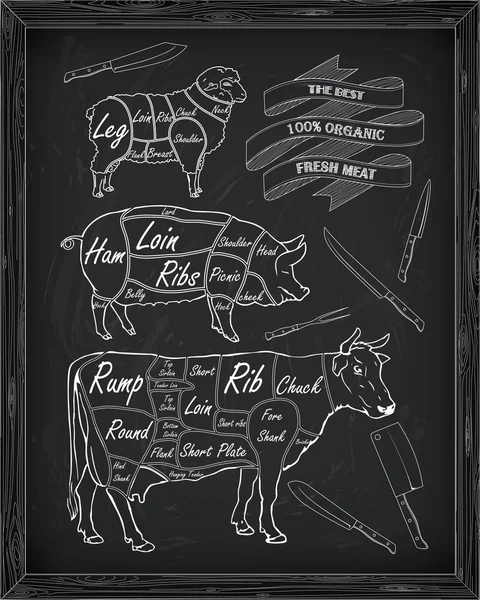 THE BEST
100% ORGANIC
FRESH MEAT
Leg
Loin
Ribs
Chuck
Neck
Shoulder
Flank
Breast
Lard
Ham
Loin
Ribs
Shoulder
Head
Picnic
cheek
Belly
Hock
Hock
Rump
Top
Sirloin
Tender Loin
Short
Loin
Rib
Chuck
Round
Top
Sirloin
Bottom
Sirloin
Flank
Short ribs
Short Plate
Fore
Shank
Brisket
Hind
Shank
Hanging Tender